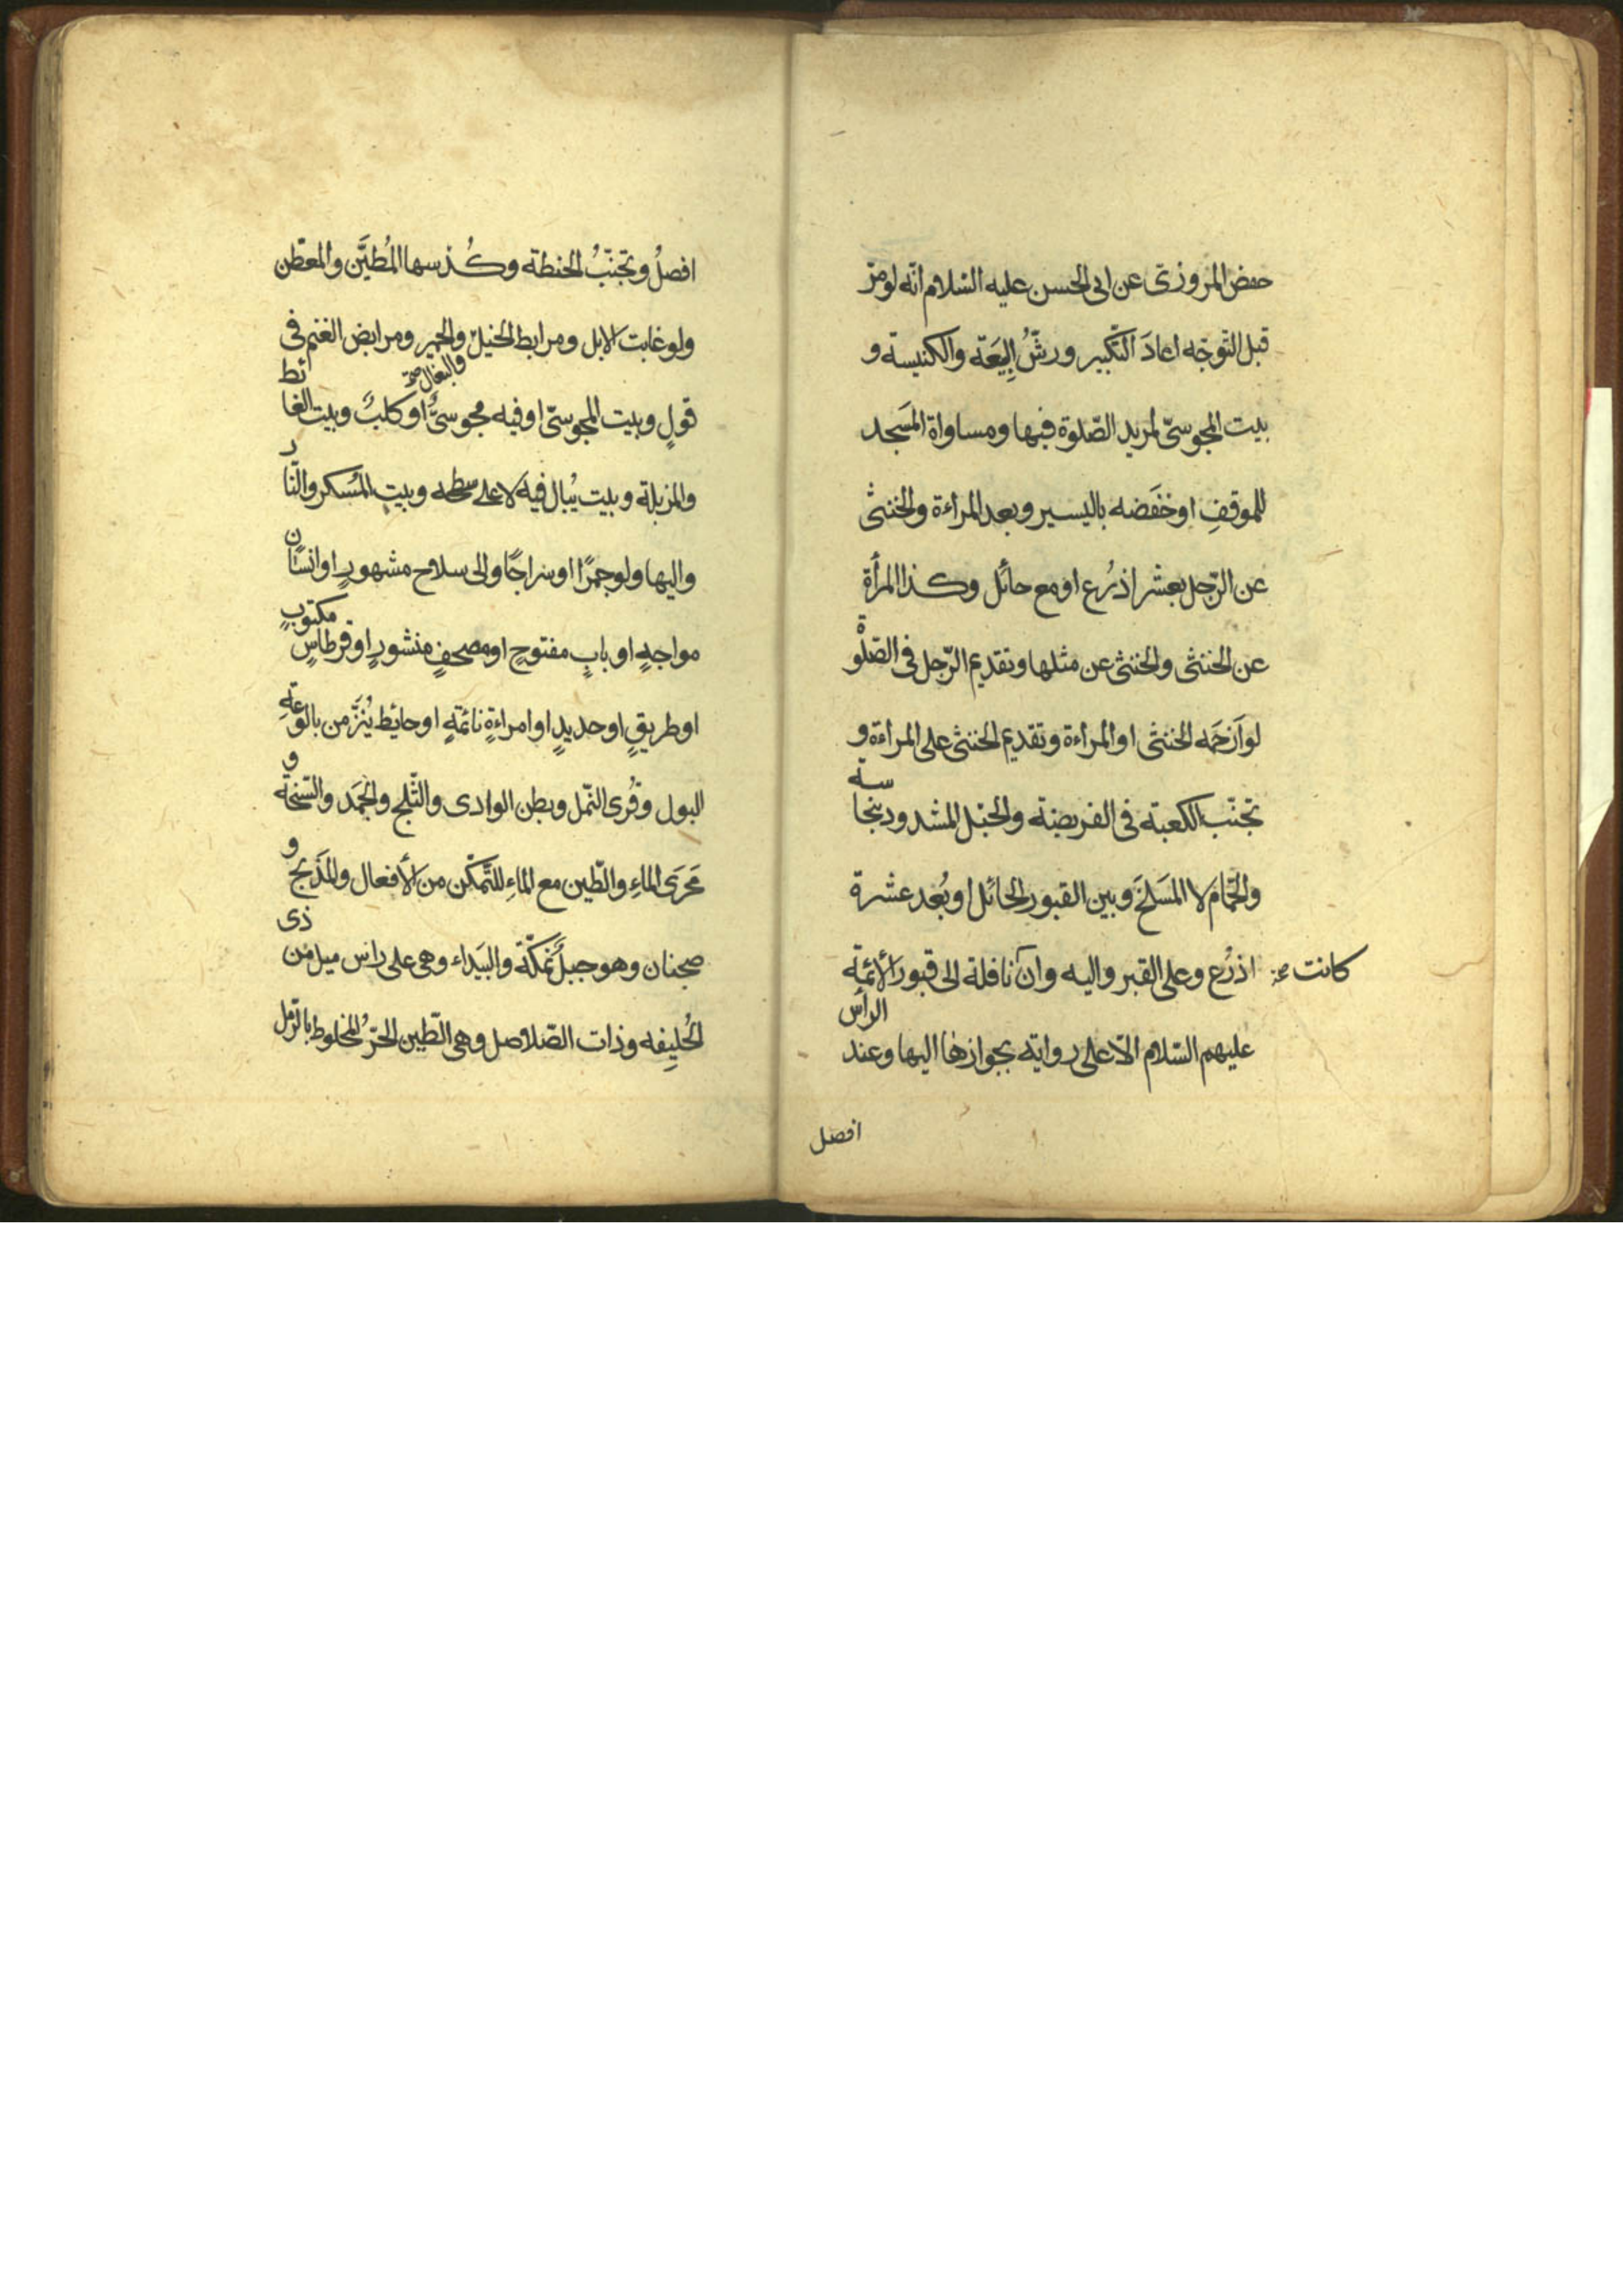 حفض المروزىّ عن ابى الحسن عليه السّلام انّه لومرّ
قبل التّوجّه اعادَ التّكبير ورشُّ البِيَعَة والكنيسة و
بيت المجوسىّ لمريد الصّلوة فيها ومساواة المَسجد
للموقفِ او خفَضه باليسير وبعد المراءة والخنثى
عن الرّجل بعشر اذرُع او مع حائل وكذا المرأة
عن الخنثى والخنثى عن مثلها وتقديم الرّجل فى الصّلوة
لو ازحَمَه الخنثى او المراءة وتقديم الخنثى على المراءة و
تجنّب الكعبة فى الفريضة والحبْل المشدود بنجاسة
والحمّام لا المَسلخَ وبين القبور لا لحائل او بُعد عشرة
اذرُع وعلى القبر واليه وان كانت صح نافلة الى قبور الأئمّة
عليهم السّلام الّا على رواية بجوازها اليها وعند الرأس
افصل
افصلُ وتجنّبُ الحنطة وكُدسها المُطيَّن والمعطن
ولو غابت الابل ومرابط الخيل والبغال صح والحمير ومرابض الغنم فى
قولٍ وبيت المجوسىّ او فيه مجوسىٌّ او كلبٌ وبيت الغائط
والمزبلة وبيت يُبال فيه لا على سطحه وبيت المُسكر والنّار
واليها ولو جمرًا او سراجًا والى سلاح مشهورٍ او انسان
مواجهٍ او بابٍ مفتوحٍ او مصحفٍ منشورٍ او قرطاسٍ مكتوبٍ
او طريقٍ او حديدٍ او امراءةٍ نائمةٍ او حايط يُنَزُّ من بالوعةِ
البول وقُرى النّمل وبطن الوادى والثّلج والجَمَد والسّبخة و
مَجرَى الماءِ والطّين مع الماءِ للتّمكّن من الأفعال والمَذبح و
ضجنان وهو جبلٌ بمكّة والبَيداء وهى على راس ميل من ذى
الحُليفه وذات الصّلاصل وهى الطّين الحرّ المخلوط بالرّمل